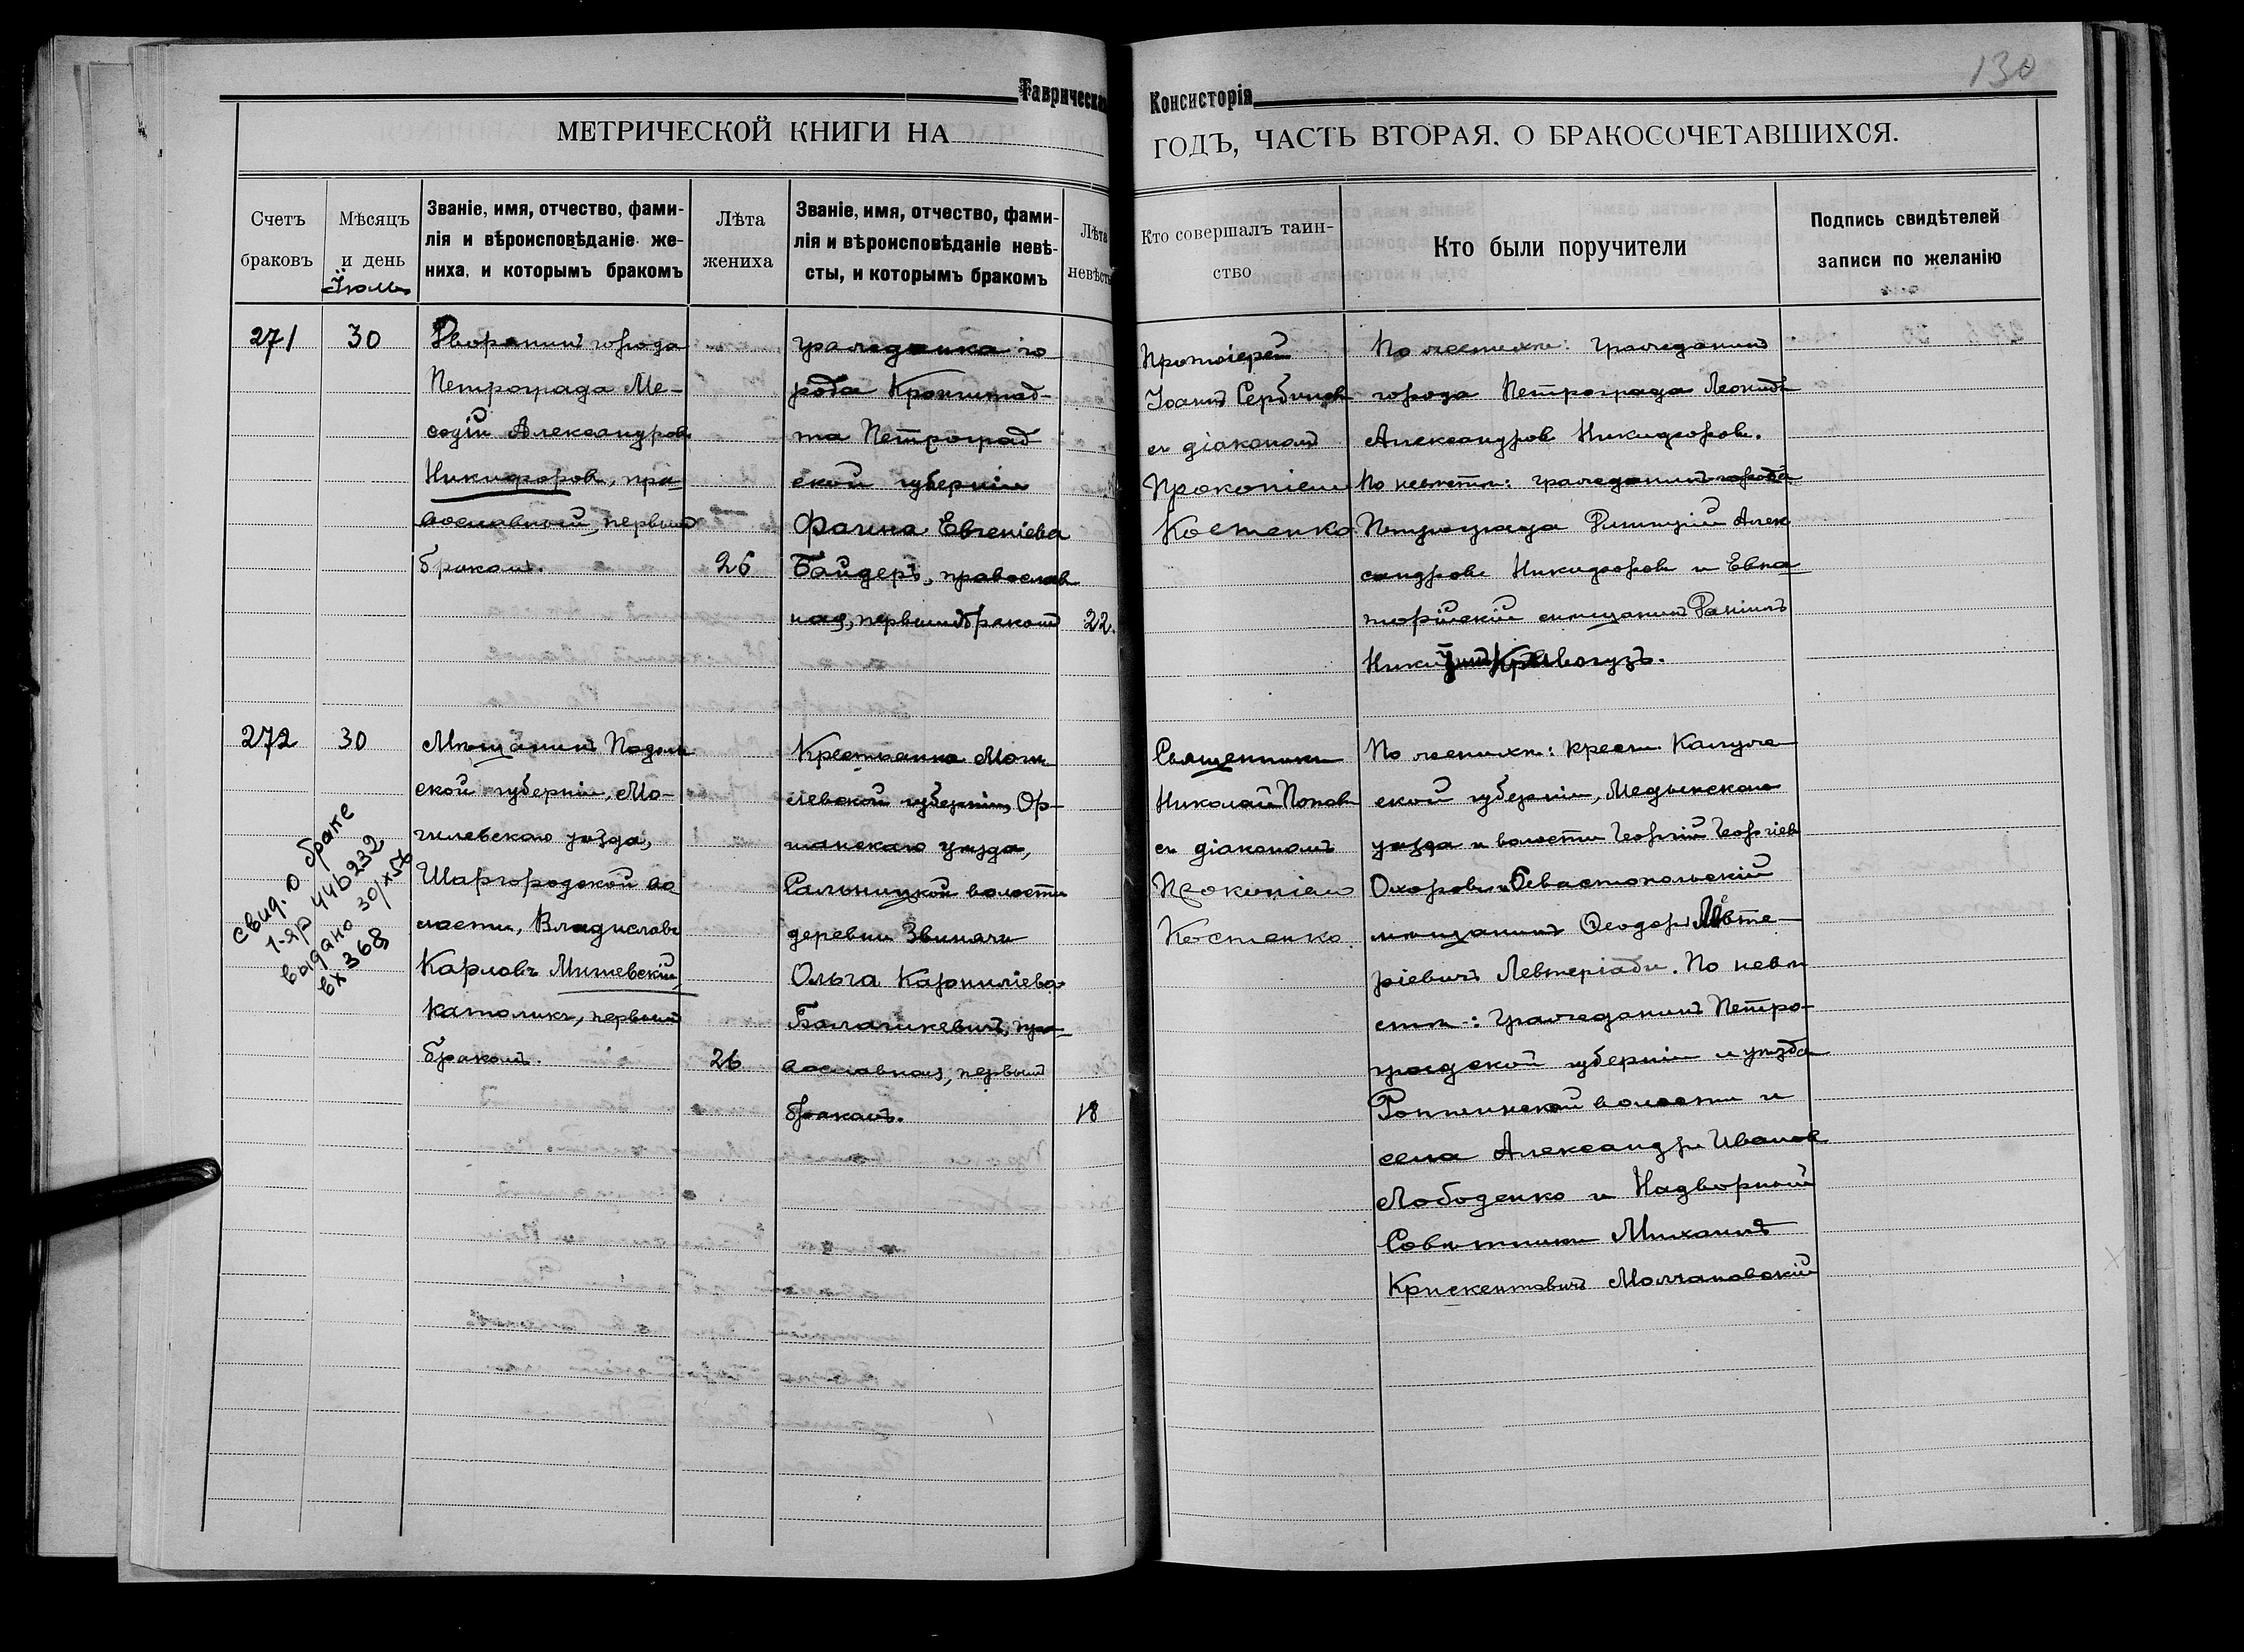 130
Таврическая Консисторія
МЕТРИЧЕСКОЙ КНИГИ НА ГОДЪ, ЧАСТЬ ВТОРАЯ, О БРАКОСОЧЕТАВШИХСЯ.
Счетъ браковъ
Мѣсяцъ и день
Званіе, имя, отчество, фами-
лія и вѣроисповѣданіе же-
ниха, и которымъ бракомъ
Лѣта жениха
Званіе, имя, отчество, фами-
лія и вѣроисповѣданіе невѣ-
сты, и которымъ бракомъ
Лѣта невѣсты
Кто совершалъ таин-
ство
Кто были поручители
Подпись свидѣтелей
записи по желанію
Іюль
271
30
Дворянинъ города
Петрограда Ме-
ѳодій Александровъ
Никифоровъ, пра-
вославный, первымъ
бракомъ.
26
гражданка го
рода Кронштад-
та Петроград
ской губерніи
Фаина Евгеніева
Байдеръ, православ
ная, первымъ бракомъ
22.
Протоіерей
Іоаннъ Сербиновъ
съ діакономъ
Прокопіемъ
Костенко
По женихѣ: гражданинъ
города Петрограда Леонидъ
Александровъ Никифоровъ.
По невѣстѣ: гражданинъ города
Петрограда Димитрій Алек
сандровъ Никифоровъ и Евпа
торійскій мѣщанинъ
Кривогузъ.
272
30
Мѣщанинъ Подоль
ской губерніи, Мо-
гилевскаго уѣзда,
Шаргородской во
лости, Владиславъ
Карловъ Мишевскій,
католикъ, первымъ
бракомъ.
26
Крестьянка Моги
левской губерніи, Ор-
шанскаго уѣзда,
волости
деревни Звиначи
Ольга Карниліева
Балашкевичъ, пра-
вославная, первымъ
бракомъ.
18
Священникъ
Николай Поповъ
съ діакономъ
Прокопіемъ
Костенко.
По женихѣ: крест. Калуж
ской губерніи, Медынскаго
уѣзда и волости Георгій Георгіевъ
и Севастопольскій
мѣщанинъ Ѳеодоръ Левте-
ріевичъ Левтеріади. По невѣ
стѣ: гражданинъ Петро-
градской губерніи и уѣзда
Ропшинской волости и
села Александръ Ивановъ
Лободенко и Надворный
Совѣтникъ Михаилъ
Крискентовичъ Молчановскій
свид. о браке
1-ЯР 446232
выдано 30/X 56
вх 368